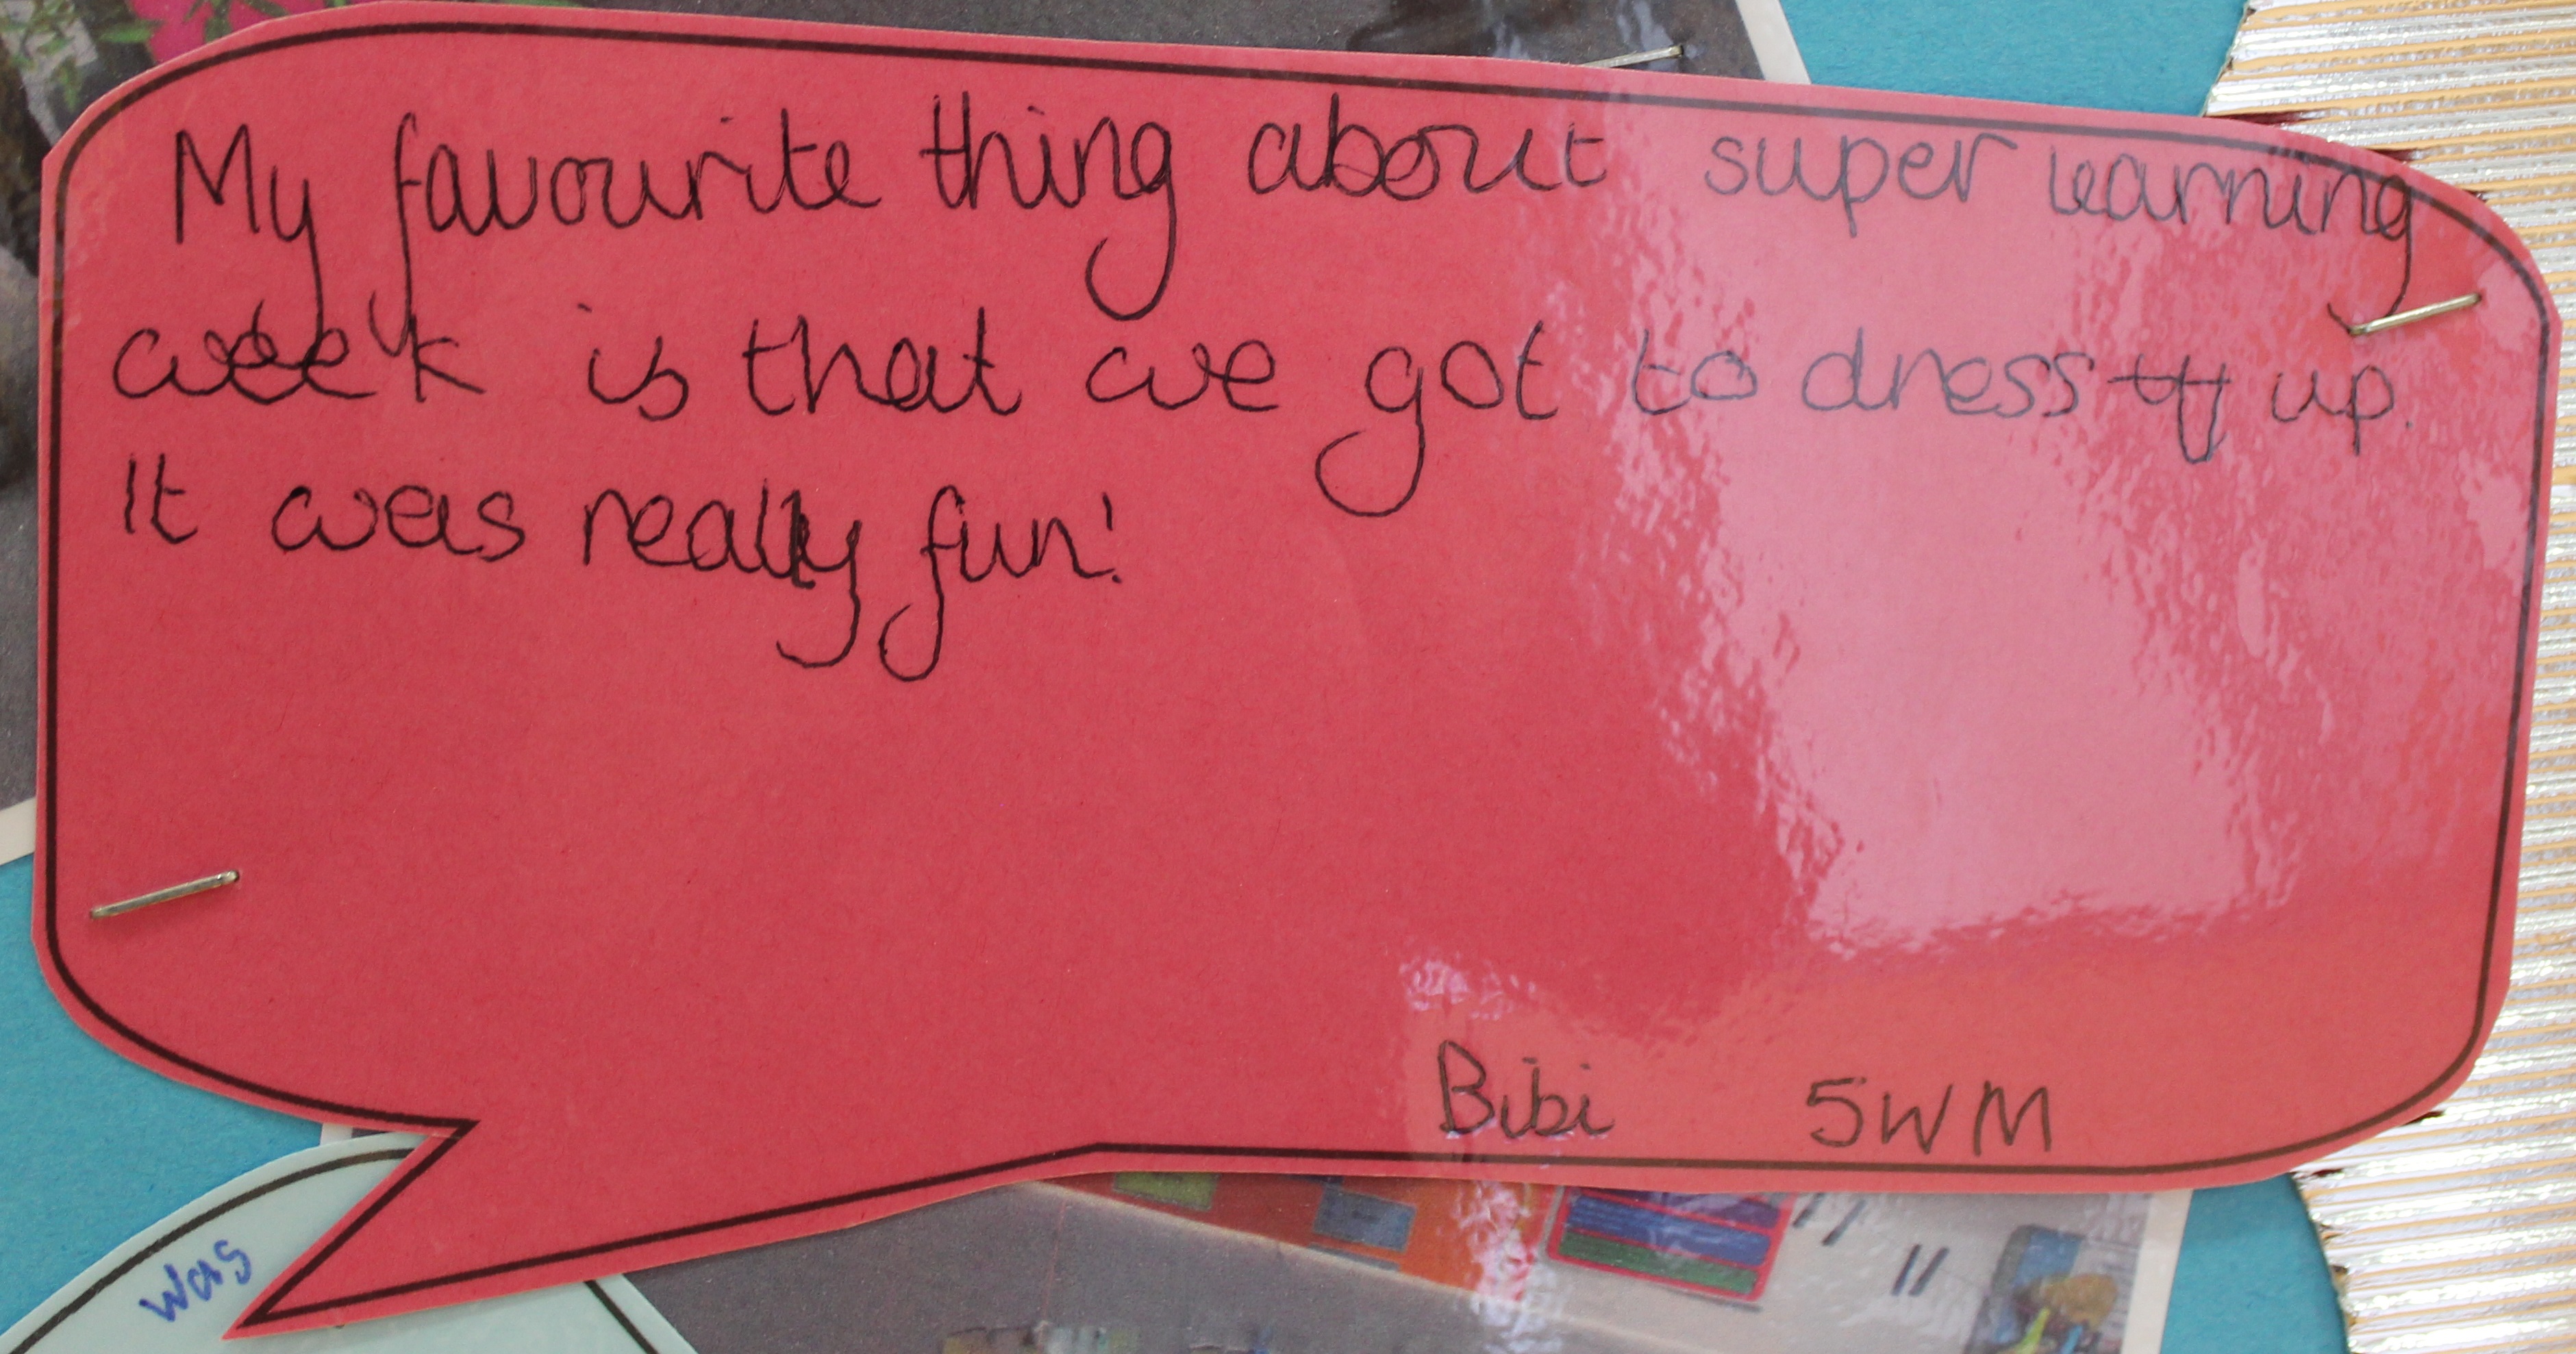 My favourite thing about super learning
week is that we got to dress up.
It was really fun!
Bibi 5WM
was